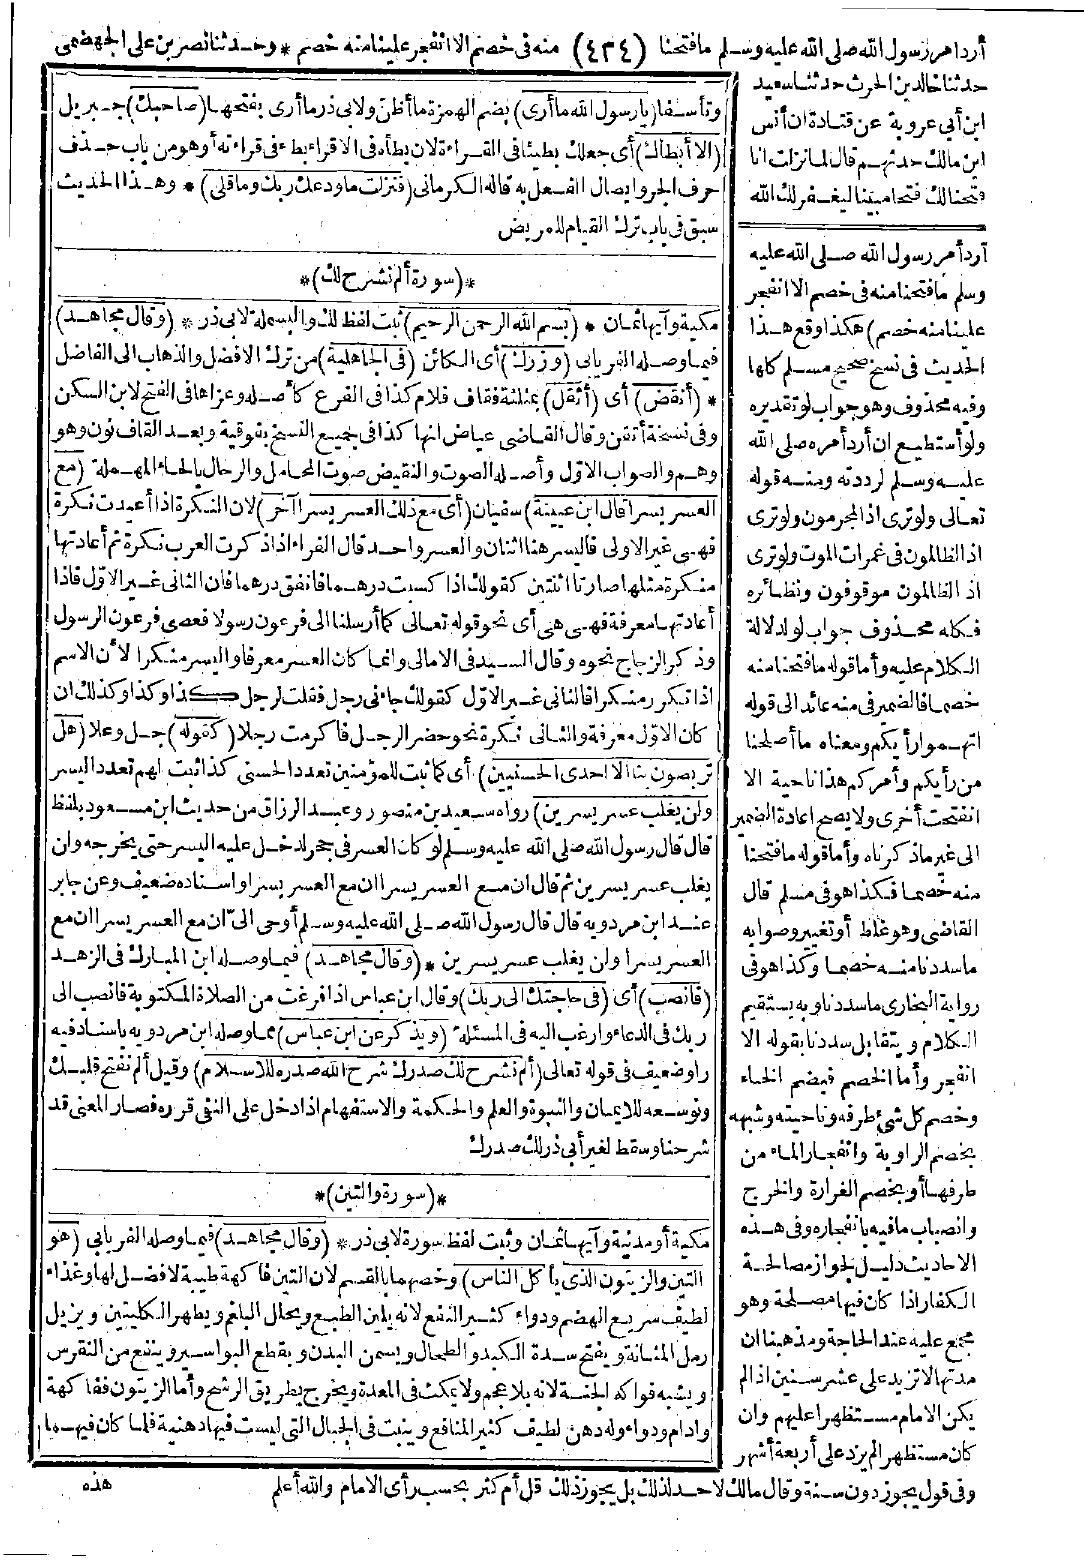 أرد أمر رسول الله صلى الله عليه وسلم ما فتحنا (٤٢٤) منه فى خصم الا انفجر علينا منه خصم * وحدثنا نصر بن على الجهضمى
حدثنا خالد بن الحرث حدثنا سعيد
ابن أبى عروبة عن قتادة ان أنس
ابن مالك حدثهم قال لما نزلت انا
فتحنا لك فتحا مبينا ليغفر لك الله
أرد أمر رسول الله صلى الله عليه
وسلم ما فتحنا منه فى خصم الا انفجر
علينا منه خصم) هكذا وقع هذا
الحديث فى نسخ صحيح مسلم كلها
وفيه محذوف وهو جواب لو تقديره
ولو أستطيع ان أرد أمره صلى الله
عليه وسلم لرددته ومنه قوله
تعالى ولو ترى اذ المجرمون ولو ترى
اذ الظالمون فى غمرات الموت ولو ترى
اذ الظالمون موقوفون ونظائره
فكله محذوف جواب لو لدلالة
الكلام عليه وأما قوله ما فتحنا منه
خصما فالضمير فى منه عائد الى قوله
اتهموا رأيكم ومعناه ما أصلحنا
من رأيكم وأمركم هذا ناحية الا
انفتحت أخرى ولا يصح اعادة الضمير
الى غير ما ذكرناه وأما قوله ما فتحنا
منه خصما فكذا هو فى مسلم قال
القاضى وهو غلط أو تغيير وصوابه
ما سددنا منه خصما وكذا هو فى
رواية البخارى ما سددنا وبه يستقيم
الكلام ويتقابل سددنا بقوله الا
انفجر وأما الخصم فبضم الخاء
وخصم كل شئ طرفه وناحيته وشبهه
بخصم الراوية وانفجار الماء من
طرفها أو بخصم الغرارة والخرج
وانصباب ما فيه بانفجاره وفى هذه
الاحاديث دليل لجواز مصالحة
الكفار اذا كان فيها مصلحة وهو
مجمع عليه عند الحاجة ومذهبنا ان
مدتها لا تزيد على عشر سنين اذا لم
يكن الامام مستظهرا عليهم وان
كان مستظهرا لم يزد على أربعة أشهر
وفى قول يجوز دون سنة وقال مالك لا حد لذلك بل يجوز ذلك قل أم كثر بحسب رأى الامام والله أعلم
وتأسفا (يا رسول الله ما أرى) بضم الهمزة ما أظن ولابى ذر ما أرى بفتحها (صاحبك) جبريل
(الا أبطأك) أى جعلك بطيئا فى القراءة لان بطأه فى الاقراء بطء فى قراءته أو هو من باب حذف
حرف الجر وايصال الفعل به قاله الكرمانى (فنزلت ما ودعك ربك وما قلى) * وهذا الحديث
سبق فى باب ترك القيام للمريض
*(سورة ألم نشرح لك)*
مكية وآيها ثمان * (بسم الله الرحمن الرحيم) ثبت لفظ لك والبسملة لابى ذر * (وقال مجاهد)
فيما وصله الفريابى (وزرك) أى الكائن (فى الجاهلية) من ترك الافضل والذهاب الى الفاضل
* (أنقض) أى (أثقل) بمثلثة فقاف فلام كذا فى الفرع كأصله وعزاها فى الفتح لابن السكن
وفى نسخة أتقن وقال القاضى عياض انها كذا فى جميع النسخ بفوقية وبعد القاف نون وهو
وهم والصواب الاول وأصله الصوت والنقيض صوت المحامل والرحال بالحاء المهملة (مع
العسر يسرا قال ابن عيينة) سفيان (أى مع ذلك العسر يسرا آخر) لان النكرة اذا أعيدت نكرة
فهى غير الاولى فاليسر هنا اثنان والعسر واحد قال الفراء اذا ذكرت العرب نكرة ثم أعادتها
منكرة مثلها صارتا اثنتين كقولك اذا كسبت درهما فانفق درهما فان الثانى غير الاول فاذا
أعادتها معرفة فهى هى أى نحو قوله تعالى كما أرسلنا الى فرعون رسولا فعصى فرعون الرسول
وذكر الزجاج نحوه وقال السيد فى الامالى وانما كان العسر معرفا واليسر منكرا لأن الاسم
اذا تكرر منكرا فالثانى غير الاول كقولك جاءنى رجل فقلت لرجل كذا وكذا وكذلك ان
كان الاول معرفة والثانى نكرة نحو حضر الرجل فاكرمت رجلا (كقوله) جل وعلا (هل
تربصون بنا الا احدى الحسنيين) أى كما ثبت للمؤمنين تعدد الحسنى كذا ثبت لهم تعدد اليسر
(ولن يغلب عسر يسرين) رواه سعيد بن منصور وعبد الرزاق من حديث ابن مسعود بلفظ
قال قال رسول الله صلى الله عليه وسلم لو كان العسر فى جحر لدخل عليه اليسر حتى يخرجه ولن
يغلب عسر يسرين ثم قال ان مع العسر يسرا ان مع العسر يسرا واسناده ضعيف وعن جابر
عند ابن مردويه قال قال رسول الله صلى الله عليه وسلم أوحى الىّ ان مع العسر يسرا ان مع
العسر يسرا ولن يغلب عسر يسرين * (وقال مجاهد) فيما وصله ابن المبارك فى الزهد
(فانصب) أى (فى حاجتك الى ربك) وقال ابن عباس اذا فرغت من الصلاة المكتوبة فانصب الى
ربك فى الدعاء وارغب اليه فى المسئلة (ويذكر عن ابن عباس) مما وصله ابن مردويه باسناد فيه
راو ضعيف فى قوله تعالى (ألم نشرح لك صدرك شرح الله صدره للاسلام) وقيل ألم نفتح قلبك
ونوسعه للايمان والنبوة والعلم والحكمة والاستفهام اذا دخل على النفى قرره فصار المعنى قد
شرحنا وسقط لغير أبى ذر لك صدرك
*(سورة والتين)*
مكية أو مدنية وآيها ثمان وثبت لفظ سورة لابى ذر * (وقال مجاهد) فيما وصله الفريابى (هو
التين والزيتون الذى يأكل الناس) وخصهما بالقسم لان التين فاكهة طيبة لا فضل لها وغذاء
لطيف سريع الهضم ودواء كثير النفع لانه يلين الطبع ويحلل البلغم ويطهر الكليتين ويزيل
رمل المثانة ويفتح سدة الكبد والطحال ويسمن البدن ويقطع البواسير وينفع من النقرس
ويشبه فواكه الجنة لانه بلا عجم ولا يمكث فى المعدة ويخرج بطريق الرشح وأما الزيتون ففاكهة
وادام ودواء وله دهن لطيف كثير المنافع وينبت فى الجبال التى ليست فيها دهنية فلما كان فيهما
هذه